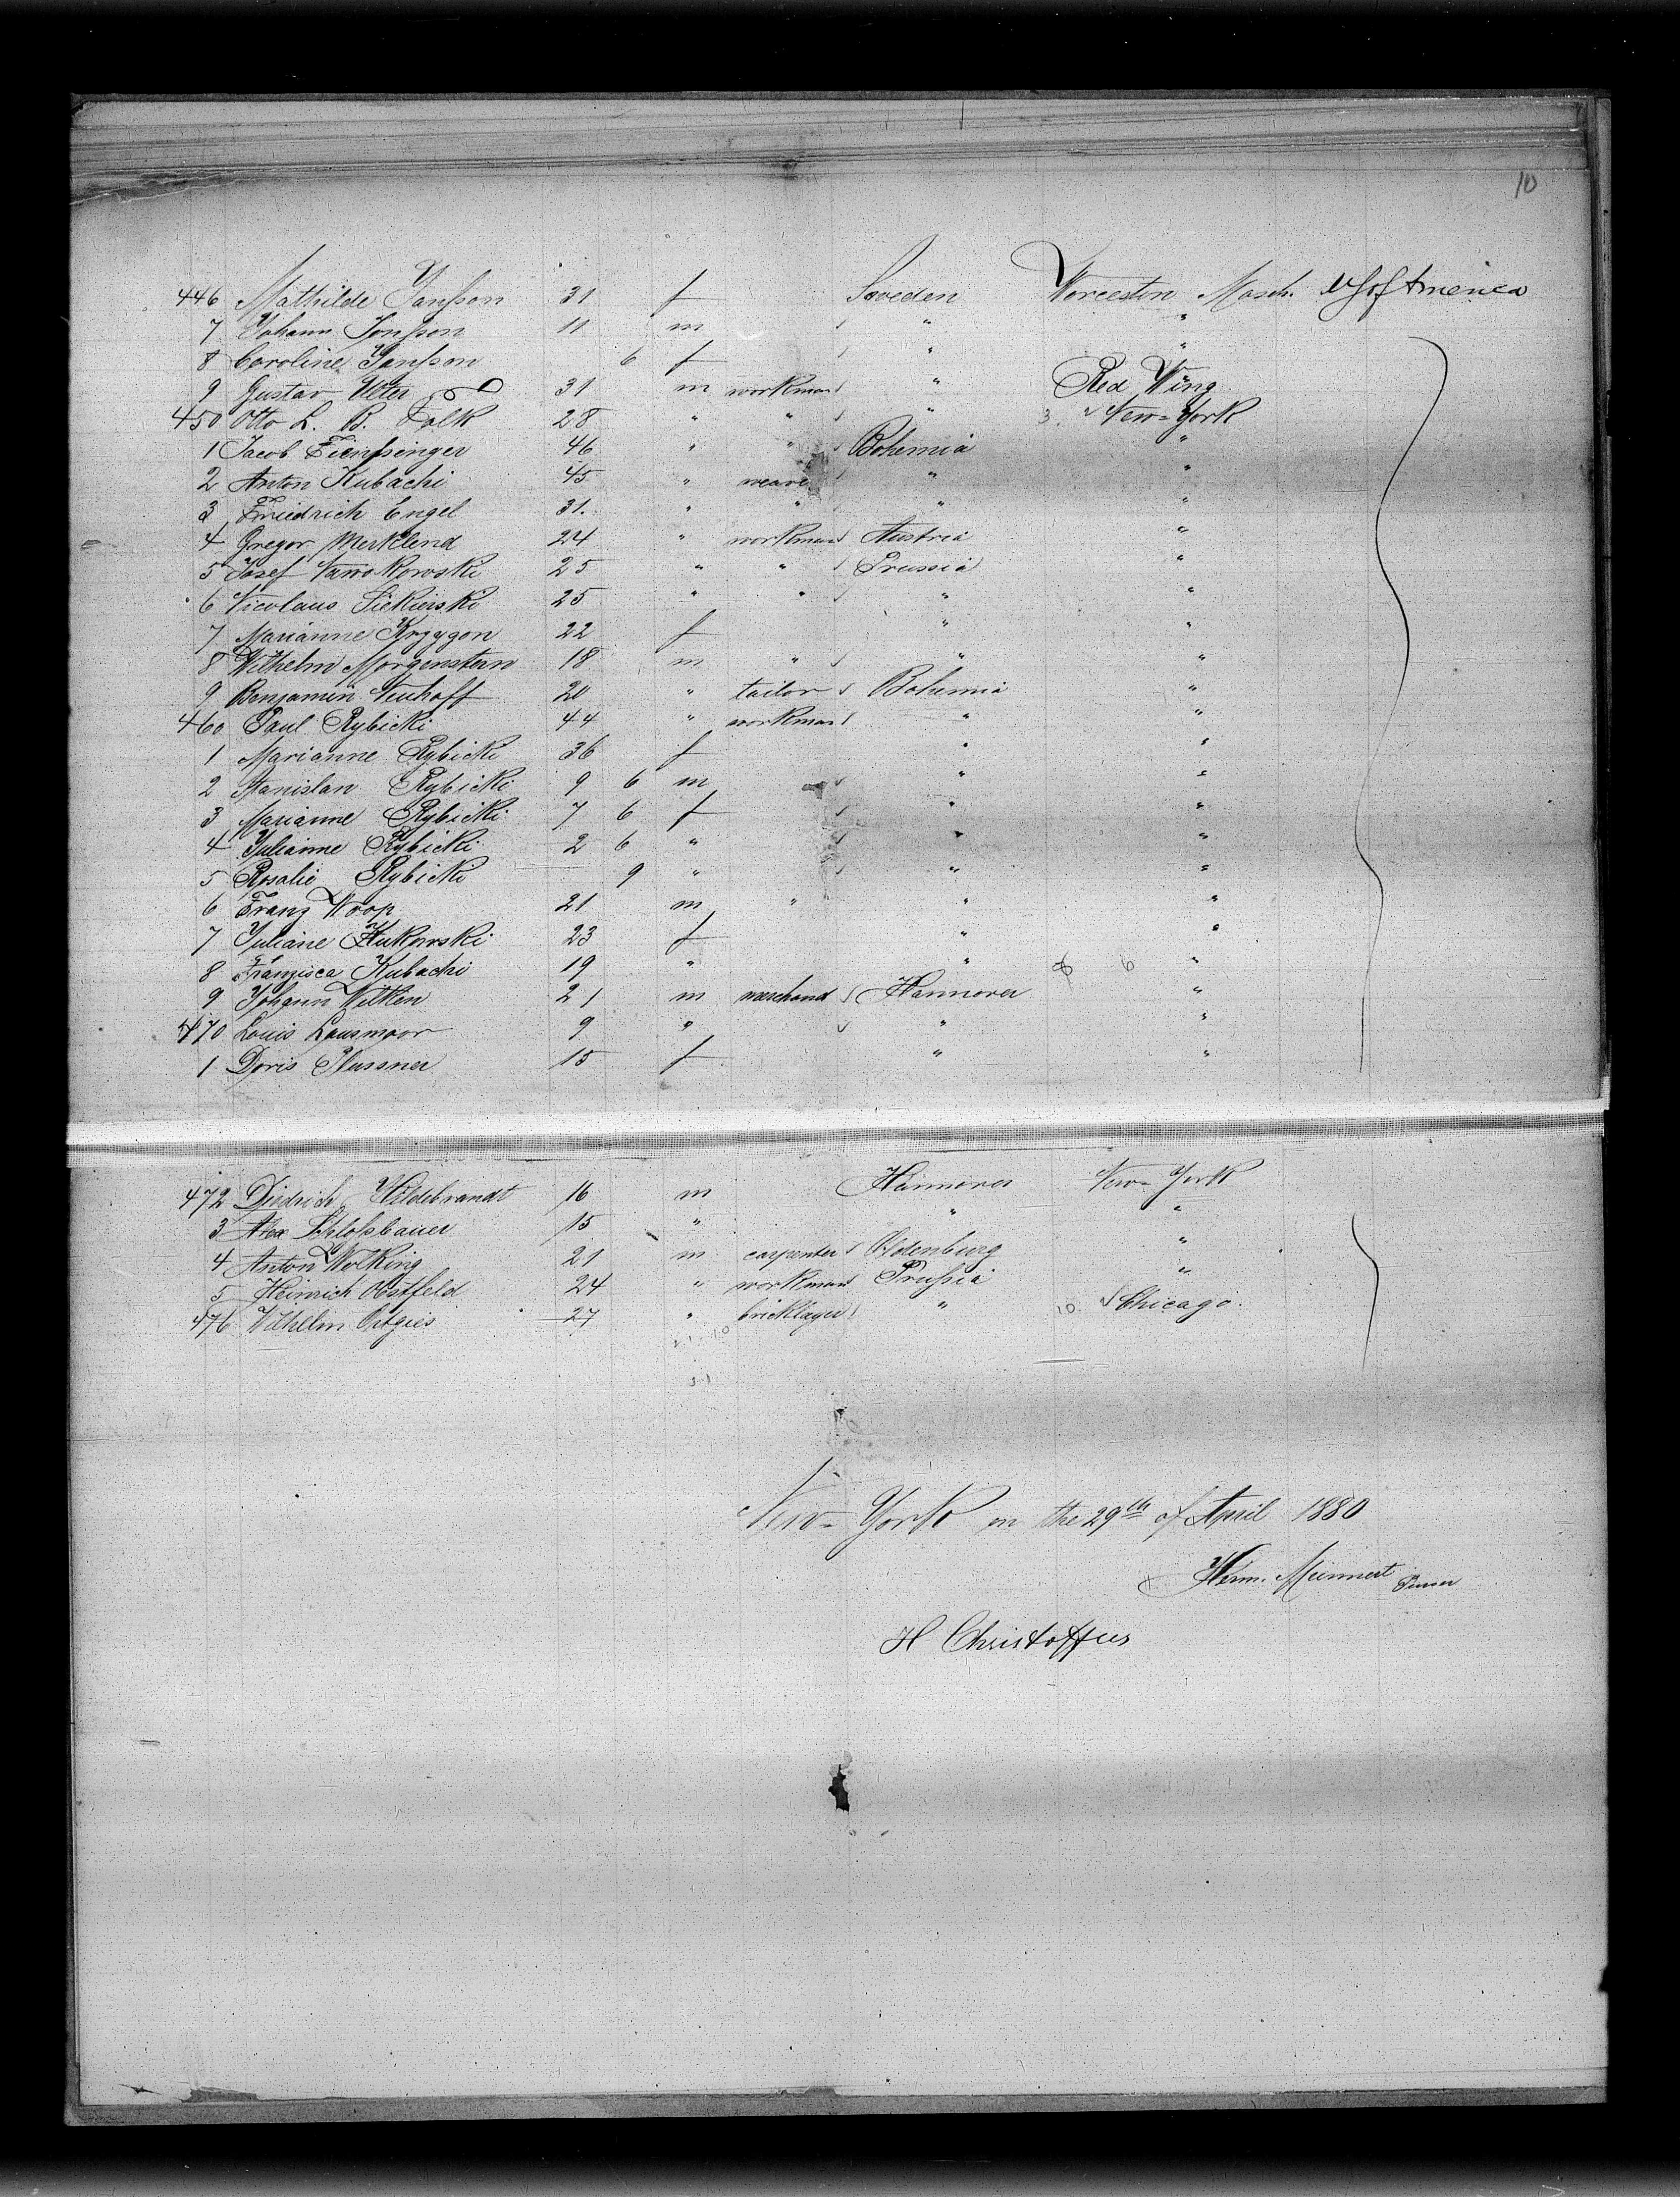 10
446 Mathilde Jansson 31 f Sweden Worcester Masch. US of America
7 Johann Jonsson 11 m " "
8 Caroline Jansson 6 f " "
9 Gustav 31 m workman " Red Wing
450 Otto L. B. Falk 28 " " " 3. New-York
1 Jacob 46 " " Bohemia "
2 Anton Kubachi 45 " weave " "
3 Friedrich Engel 31. " " " "
4 Gregor Merklend 24 " workman Austria "
5 Josef 25 " " Prussia "
6 Nicolaus Siekierski 25 " " " "
7 Marianne Krzygon 22 f " "
8 Wilhelm Morgenstern 18 m " " "
9 Benjamin Neuhoff 20 " tailor Bohemia "
460 Paul Rybicki 44 " workman " "
1 Marianne Rybicki 36 f " "
2 Stanislan Rybicki 9 6 m " "
3 Marianne Rybicki 7 6 f " "
4 Julianne Rybicki 2 6 " " "
5 Rosalie Rybicki 9 " " "
6 Franz Woop 21 m " " "
7 Juliane Zukowski 23 f " "
8 Franzisca Kubachi 19 " " 6 "
9 Johann Wilken 21 m marchand Hannover "
470 Louis Lausmoor 9 " " "
1 Doris Plussner 15 f " "
472 Diedrich Hildebrandt 16 m Hannover New-York
3 Alex Schlossbauer 15 " " "
4 Anton Wolking 21 m carpenter Oldenburg "
5 Heinrich Obstfeld 24 " workman Prussia "
476 Wilhelm Ortgies 27 " bricklayer " 10 Chicago.
New-York on the 29th of April 1880
Herm. Meinnert Purser
H Christoffers